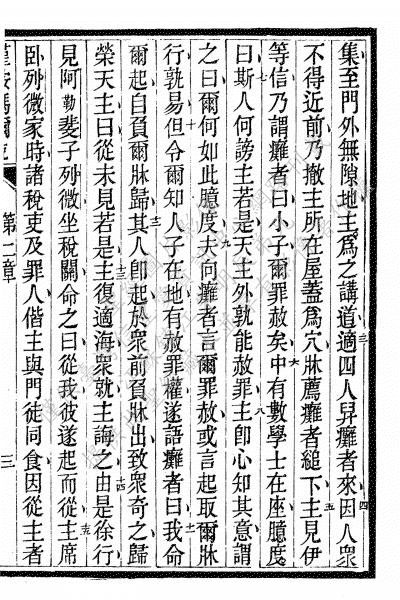 集至門外無隙地主爲之講道適四人舁癱者來因人衆
不得近前乃撤主所在屋蓋爲穴牀薦癱者縋下主見伊
等信乃謂癱者曰小子爾罪赦矣中有數學士在座臆度
曰斯人何謗主若是天主外孰能赦罪主卽心知其意謂
之曰爾何如此臆度夫向癱者言爾罪赦或言起取爾牀
行孰易但令爾知人子在地有赦罪權遂語癱者曰我命
爾起自負爾牀歸其人卽起於衆前負牀出致衆奇之歸
榮天主曰從未見若是主復適海衆就主誨之由是徐行
見阿勒斐子列微坐稅關命之曰從我彼遂起而從主席
臥列微家時諸稅吏及罪人偕主與門徒同食因從主者
第二章
三